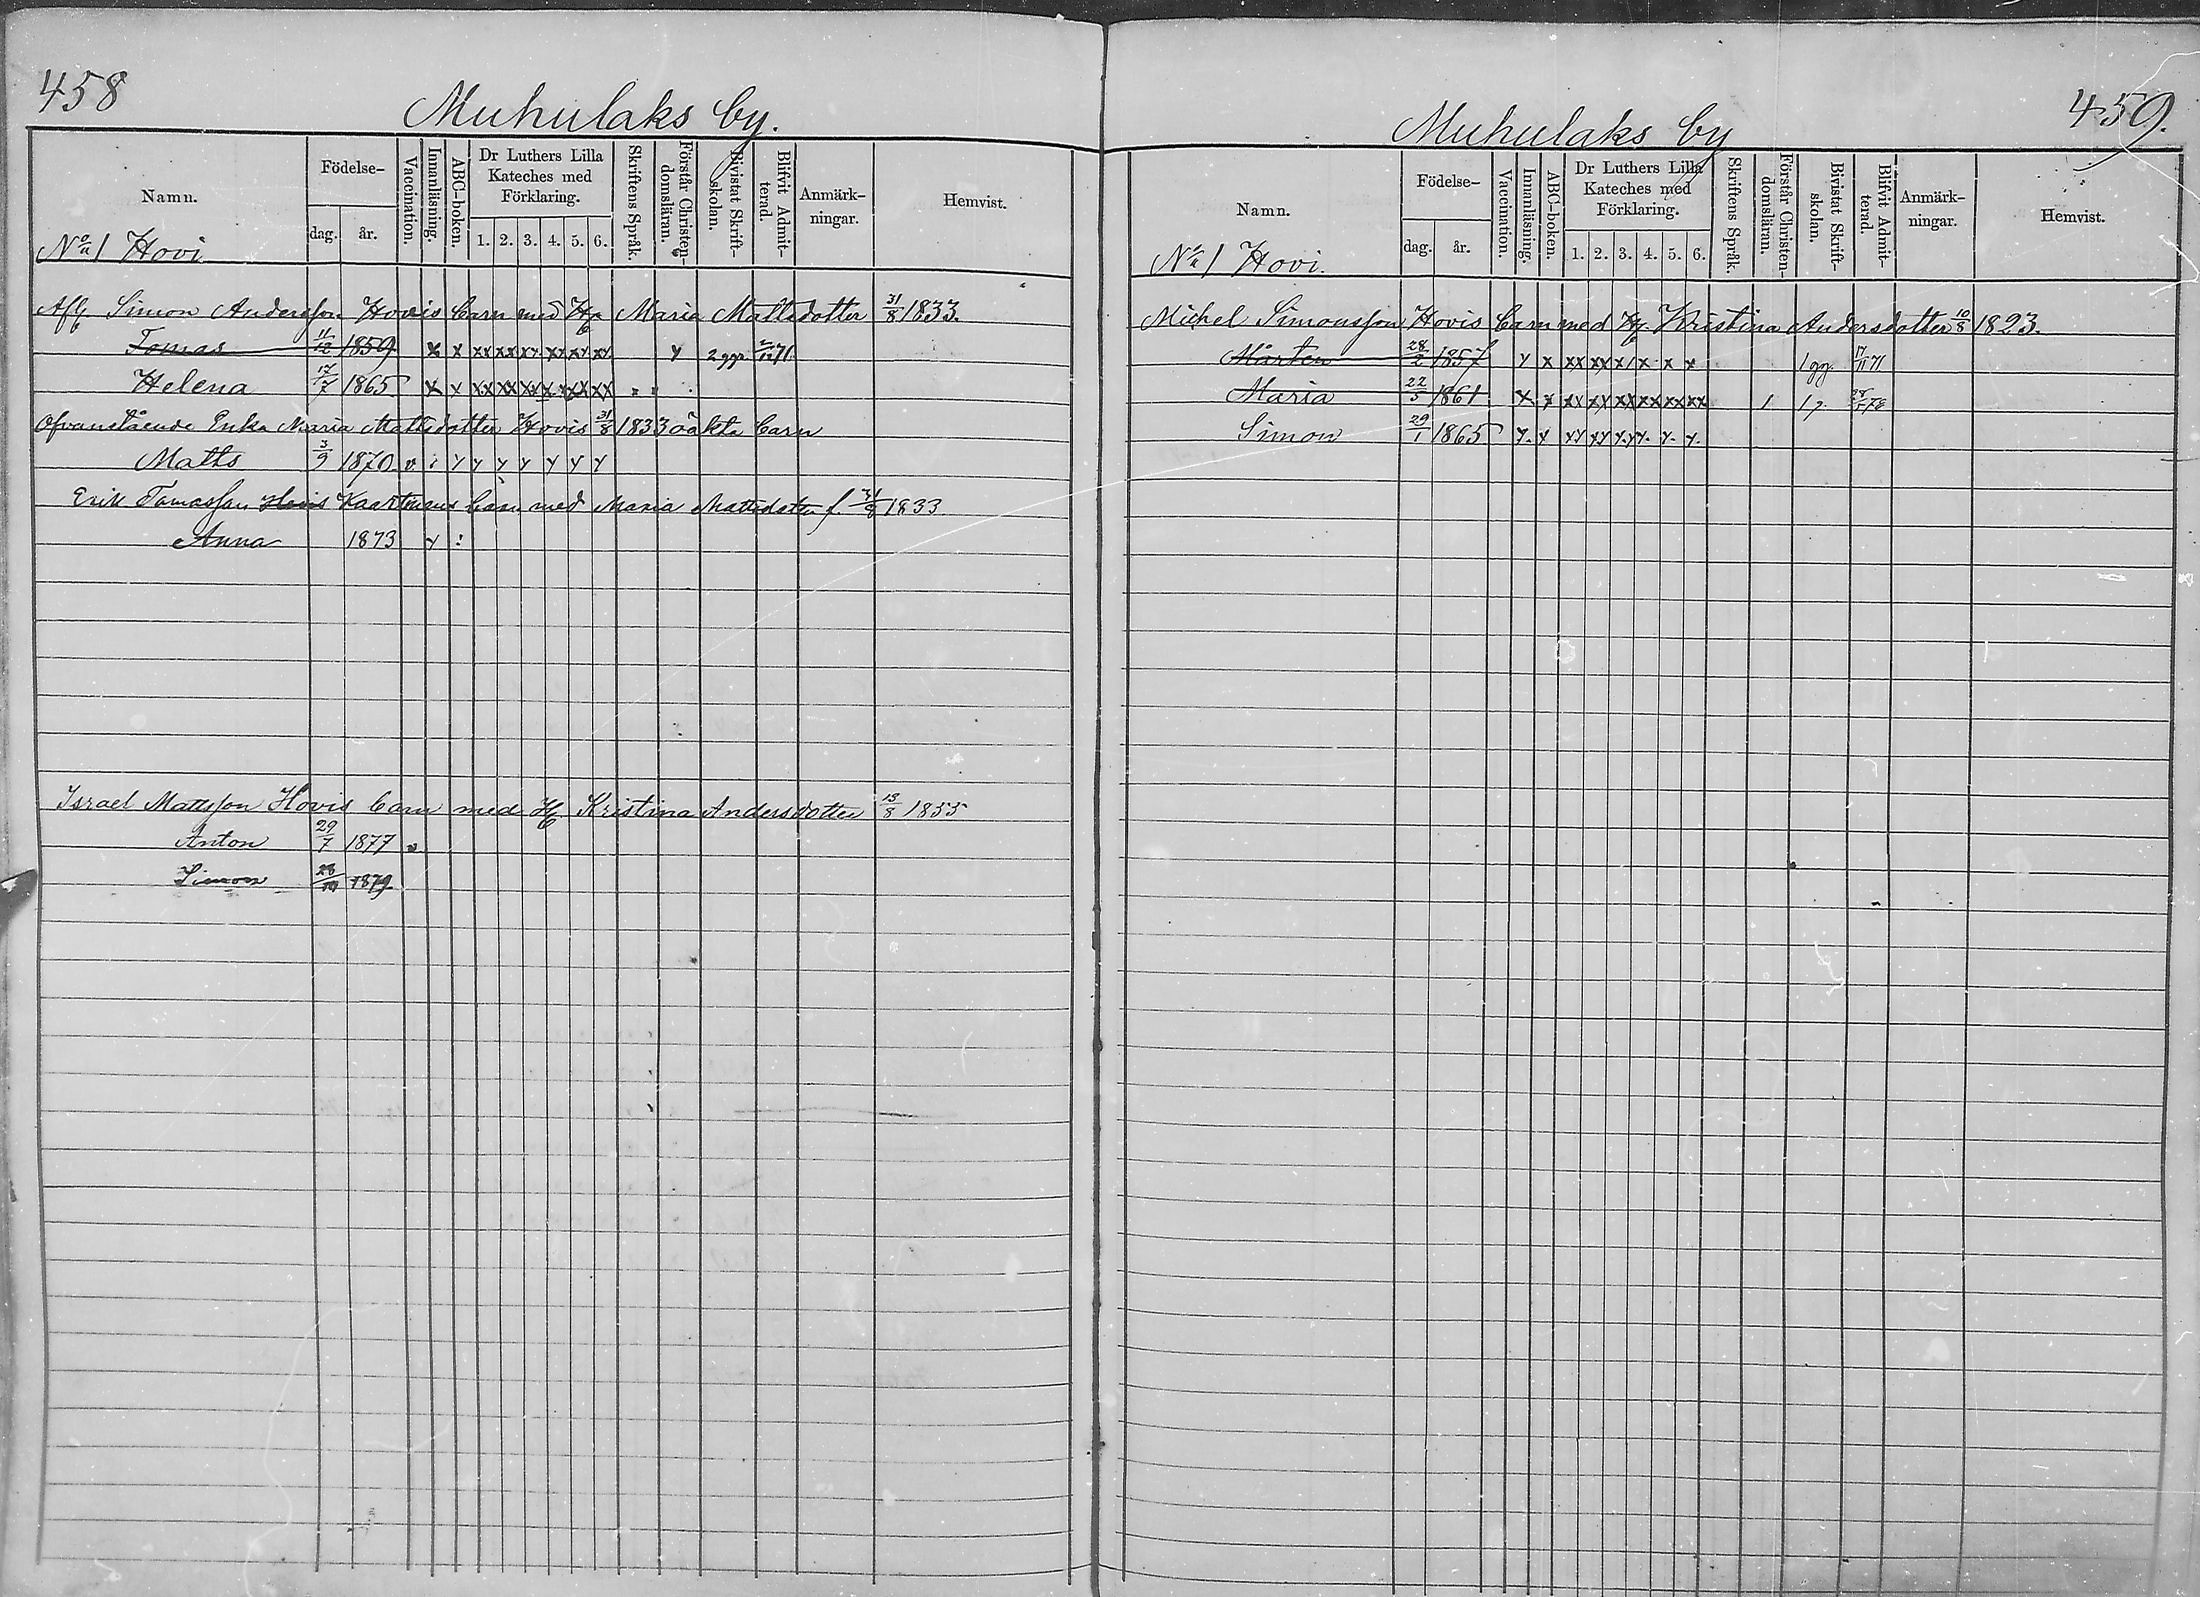 458
Muhulaks by.
Namn.
Födelse-
dag. år.
Vaccination.
Innanläsning.
ABC-boken.
Dr Luthers Lilla Kateches med Förklaring.
1. 2. 3. 4. 5. 6.
Skriftens Språk.
Förstår Christendomsläran.
Bivistat Skriftskolan.
Blifvit Admitterad.
Anmärkningar.
Hemvist.
No 1 Hovi
Simon Andersson Hovis barn med H. Maria Mattsdotter 31/8 1833.
Tomas 11/12 1859 x x xx xx xy xx xy xy y 2 ggr
Helena 17/7 1865 x x xx xx xx x xx xx
Ofvanstående Enka Maria Mattsdotter Hovis 31/8 1833 oäkta barn
Matts 3/9 1870 v i y y y y y y y
Erik Tomasson Hovis Kaartinens barn med Maria Mattsdotter f. 31/8 1833
Anna 1873 y :
Israel Mattsson Hovis barn med H. Kristina Andersdotter 13/8 1855
Anton 29/7 1877 v
Simon 28/10 1879
459.
Muhulaks by
Namn.
Födelse-
dag. år.
Vaccination.
Innanläsning.
ABC-boken.
Dr Luthers Lilla Kateches med Förklaring.
1. 2. 3. 4. 5. 6.
Skriftens Språk.
Förstår Christendomsläran.
Bivistat Skriftskolan.
Blifvit Admitterad.
Anmärkningar.
Hemvist.
No 1 Hovi.
Michel Simonsson Hovis barn med H. Kristina Andersdotter 10/8 1823.
Mårten 28/2 1857 y x xx xx x x x x 1 gg. 17/11 71
Maria 22/5 1861 x x xx xx xx xx xx xx 1 1 g. 78
Simon 29/1 1865 y. y yy yy y.y y. y. y.